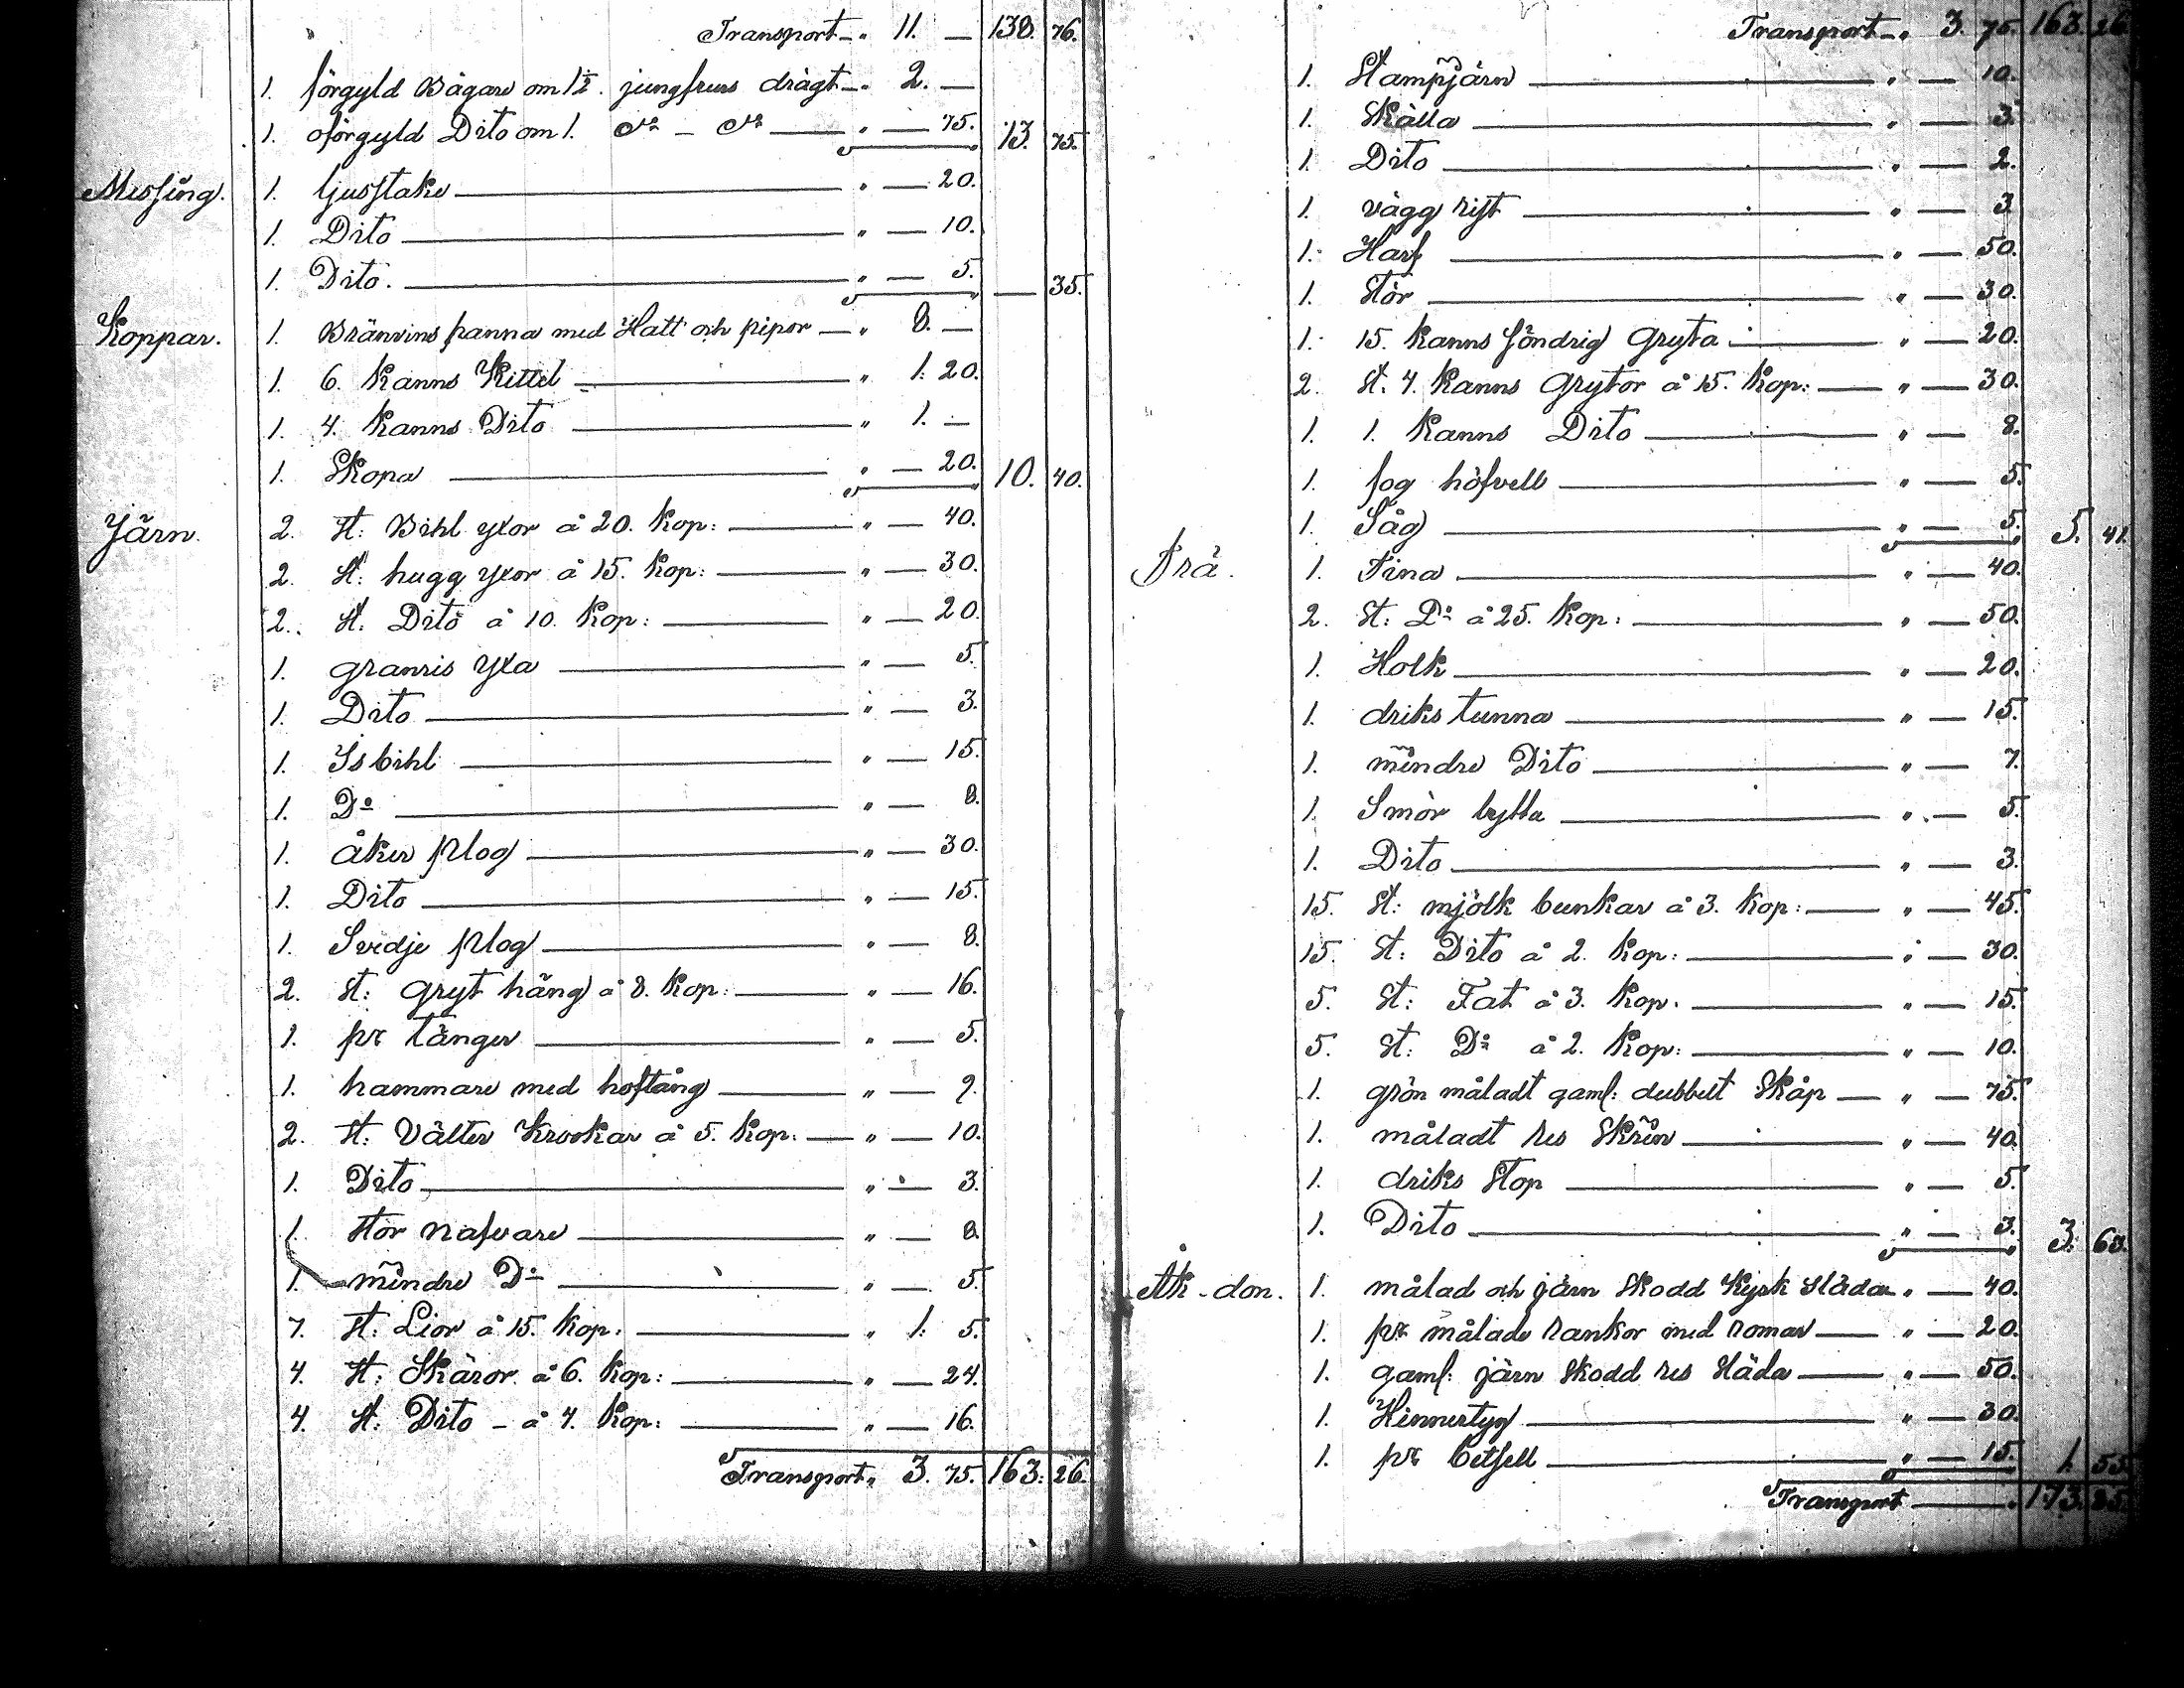 Transport „ 11. — 138. 76.
1. förgyld Bägare om 1½. jungfrurs drägt „ 2. —
1. oförgyld Dito om 1. d:o – d:o „ — 75. 13. 75.
Messing. 1. ljusstake „ — 20.
1. Dito „ — 10.
1. Dito. „ — 5. — 35.
Koppar. 1. Bränvins panna med Hatt och pipor „ 8. —
1. 6. kanns Kittel „ 1. 20.
1. 4. kanns Dito „ 1. —
1. Skopa „ — 20. 10. 40.
Järn. 2. st: Bihl yxor á 20. Kop: „ — 40.
2. st: hugg yxor á 15. Kop: „ — 30.
2. st. Dito á 10. Kop: „ — 20.
1. granris yxa „ — 5.
1. Dito „ — 3.
1. Isbihl „ — 15.
1. D:o „ — 8.
1. åker plog „ — 30.
1. Dito „ — 15.
1. Svedje plog „ — 8.
2. st: gryt häng á 8. Kop: „ — 16.
1. pr tänger „ — 5.
1. hammare med hoftång „ — 9.
2. st: Välter Krookar á 5. Kop. „ — 10.
1. Dito „ — 3.
1. stor nafvare „ — 8.
1. mindre D:o „ — 5.
7. st: Lior á 15. Kop. „ 1. 5.
4. st: Skäror á 6. Kop: „ — 24.
4. st: Dito – á 4. Kop: „ — 16.
Transport „ 3. 75. 163. 26.
Transport „ 3. 75. 163. 26.
1. Stampjärn „ — 10.
1. Skälla „ — 3.
1. Dito „ — 2.
1. vägg rist „ — 3.
1. Harf „ — 50.
1. Stör „ — 30.
1. 15. kanns söndrig Gryta „ — 20.
2. st. 4. kanns Grytor á 15. Kop: „ — 30.
1. 1. kanns Dito „ — 8.
1. fog höfvell „ — 5.
1. Såg „ — 5. 5. 41.
Trä. 1. Tina „ — 40.
2. st: D:o á 25. Kop: „ — 50.
1. Holk „ — 20.
1. driks tunna „ — 15.
1. mindre Dito „ — 7.
1. Smör bytta „ — 5.
1. Dito „ — 3.
15. st: mjölk bunkar á 3. Kop: „ — 45.
15. st: Dito á 2. Kop: „ — 30.
5. st: Fat á 3. Kop. „ — 15.
5. st: D:o á 2. Kop: „ — 10.
1. grön måladt gaml: dubbelt Skåp „ — 75.
1. måladt res Skrin „ — 40.
1. driks Stop „ — 5.
1. Dito „ — 3. 3. 63.
Åk-don. 1. målad och järn skodd Kyrk släda „ — 40.
1. pr målade rankor med romar „ — 20.
1. gaml: järn skodd res släda „ — 50.
1. Kinnertyg „ — 30.
1. pr betsell „ — 15. 1. 55.
Transport „ 173. 85.